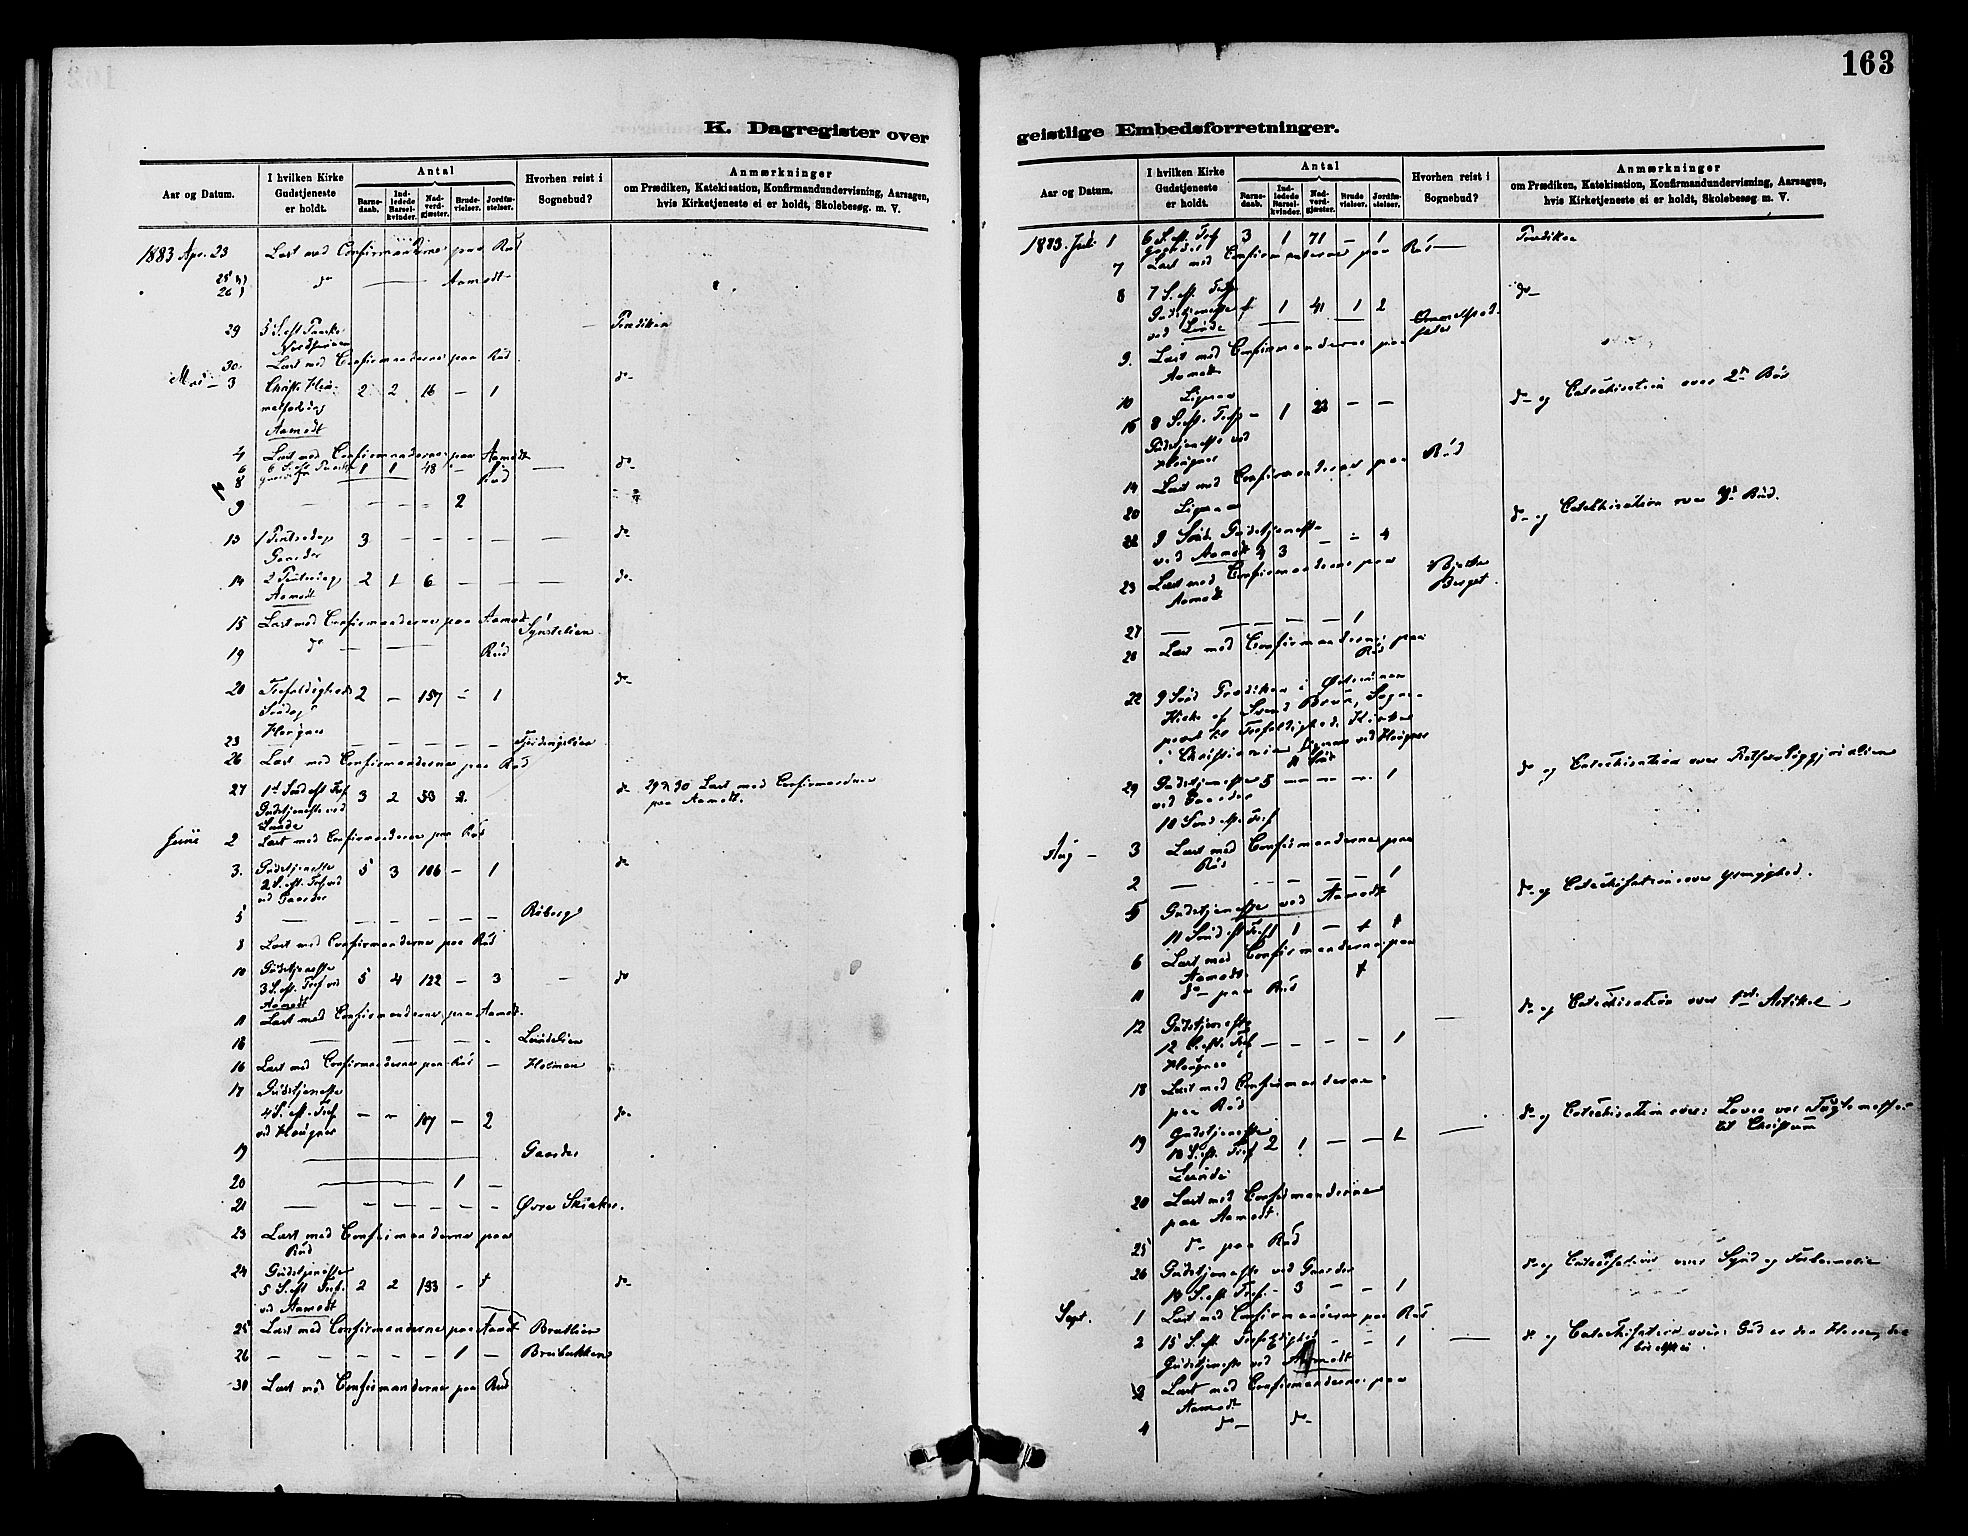 163
K. Dagregister over geistlige Embedsforretninger.
Aar og Datum.
I hvilken Kirke Gudstjeneste er holdt.
Antal
Barne-daab.
Ind-ledede Barsel-kvinder.
Nad-verd-gjæster.
Brude-vielser.
Jordfæ-stelser.
Hvorhen reist i Sognebud?
Anmærkninger
om Prædiken, Katekisation, Konfirmandundervisning, Aarsagen,
hvis Kirketjeneste ei er holdt, Skolebesøg. m. V.
1883 Apr. 23 Læst med Confirmanderne paa Rud
25 26 do — Aamodt
29 5 S. eft Paaske — Prædiken
30 Læst med Confirmanderne paa Rud
Mai – 3 Christi Him- 2 2 16 – 1 do
melfartsdag
Aamodt
4 Læst med Confirmanderne paa Aamodt
6 6 S. eft Paaske 1 1 48 – 1 — do
8 Rud
9 – – – – 2
13 1 Pintsedag 3 – – – – — do
Gaarder
14 2 Pintsedag 2 1 6 – – — do
Aamodt
15 Læst med Confirmanderne paa Aamodt
19 do — Rud
20 Trefoldigheds 2 – 157 – 1 do
Søndag
Haugner
23 – – – – –
26 Læst med Confirmanderne paa Rud
27 1st Sønd eft Tref 3 2 53 2 do 29 & 30 Læst med Confirmanderne
Gudstjeneste ved paa Aamodt.
Lunde
Juni 2 Læst med Confirmanderne paa Rud
3. Gudstjeneste 5 3 106 – 1 do
2 S. eft. Tref ved
Gaarder
5 — – – – – – Roberg
8 Læst med Confirmanderne paa Rud
10 Gudstjeneste 5 4 122 – 3 – do
3 S. eft. Tref ved
Aamodt
11 Læst med Confirmanderne paa Aamodt
18 — – – – Lundelien
16 Læst med Confirmanderne paa Rud –
17 Gudstjeneste
4 S. eft. Tref – – 107 – 2 do
ved Haugner
19 — Gaarder
20 — 1 –
21 — – – – – – Øvre
23 Læst med Confirmanderne paa
Rud
24 Gudstjeneste
5 S. eft Tref. 2 2 133 – 1 do
ved Aamodt
25 Læst med Confirmanderne paa Aamodt
26 – – – – – 1 –
30 Læst med Confirmanderne paa Rud
Aar og Datum.
I hvilken Kirke Gudstjeneste er holdt.
Antal
Barne-daab.
Ind-ledede Barsel-kvinder.
Nad-verd-gjæster.
Brude vielser.
Jordfæ-stelser.
Hvorhen reist i Sognebud?
Anmærkninger
om Prædiken, Katekisation, Konfirmandundervisning, Aarsagen,
hvis Kirketjeneste ei er holdt, Skolebesøg. m. V.
1883. Juli 1 6 S. eft. Tref 3 1 71 – 1 Prædiken
Gaarder
7 Læst med Confirmanterne paa Rud
8 7 S. eft. Tref do
Gudstjeneste 1 41 1 2
ved Lunde
9. Læst med Confirmanderne paa
Aamodt
10
15 8 S. eft. Tref – 1 22 – – do og Catechisation over 2n Bud
Gudstjeneste ved
Haugner
14 Læst med Confirmanderne paa Rud
20
22 9 Sønd. Gudstjeneste do og Catechisation over Bud.
ved Aamodt 4 3 – – 4
23 Læst med Confirmanderne paa
Aamodt
27 — – – – – 1
28 Læst med Confirmanderne paa
Rud
22 9 Sønd Prædiken i
Kirke af Svend Brun, Sogne-
præst til Trefoldigheds Kirke
i Christiania
29 Gudstjeneste 5 – – – 1 do og Catechisation over
ved Gaarder
10 Sønd eft. Tref
Aug – 3 Læst med Confirmanderne paa
Rud
2 — – – – – 1
5 Gudstjeneste ved Aamodt do og Catechisation over
11 Sønd eft Tref 1 – 1 1
6 Læst med Confirmanderne paa
Aamodt
11 do paa Rud
12 Gudstjeneste do og Catechisation over 1ste Artikel
12 S. eft. Tref – – – – 1
Haugner
18 Læst med Confirmanderne
paa Rud
19 Gudstjeneste do og Catechisation over: Loven vor Tugtemester
13 S. eft. Tref 2 1 – – 1 til Christum
Lunde
20 Læst med Confirmanderne
paa Aamodt.
25 do paa Rud
26 Gudstjeneste ved Gaarder do og Catechisation over Synd og
14 S. eft. Tref – 3 – – 1
Sept. 1 Læst med Confirmanderne paa Rud
2 15 S. eft Trefoldighed – – 1 — do og Catechisation over: Gud er den
Gudstjeneste ved Aamodt
3 Læst med Confirmanderne paa
Aamodt
4 do do